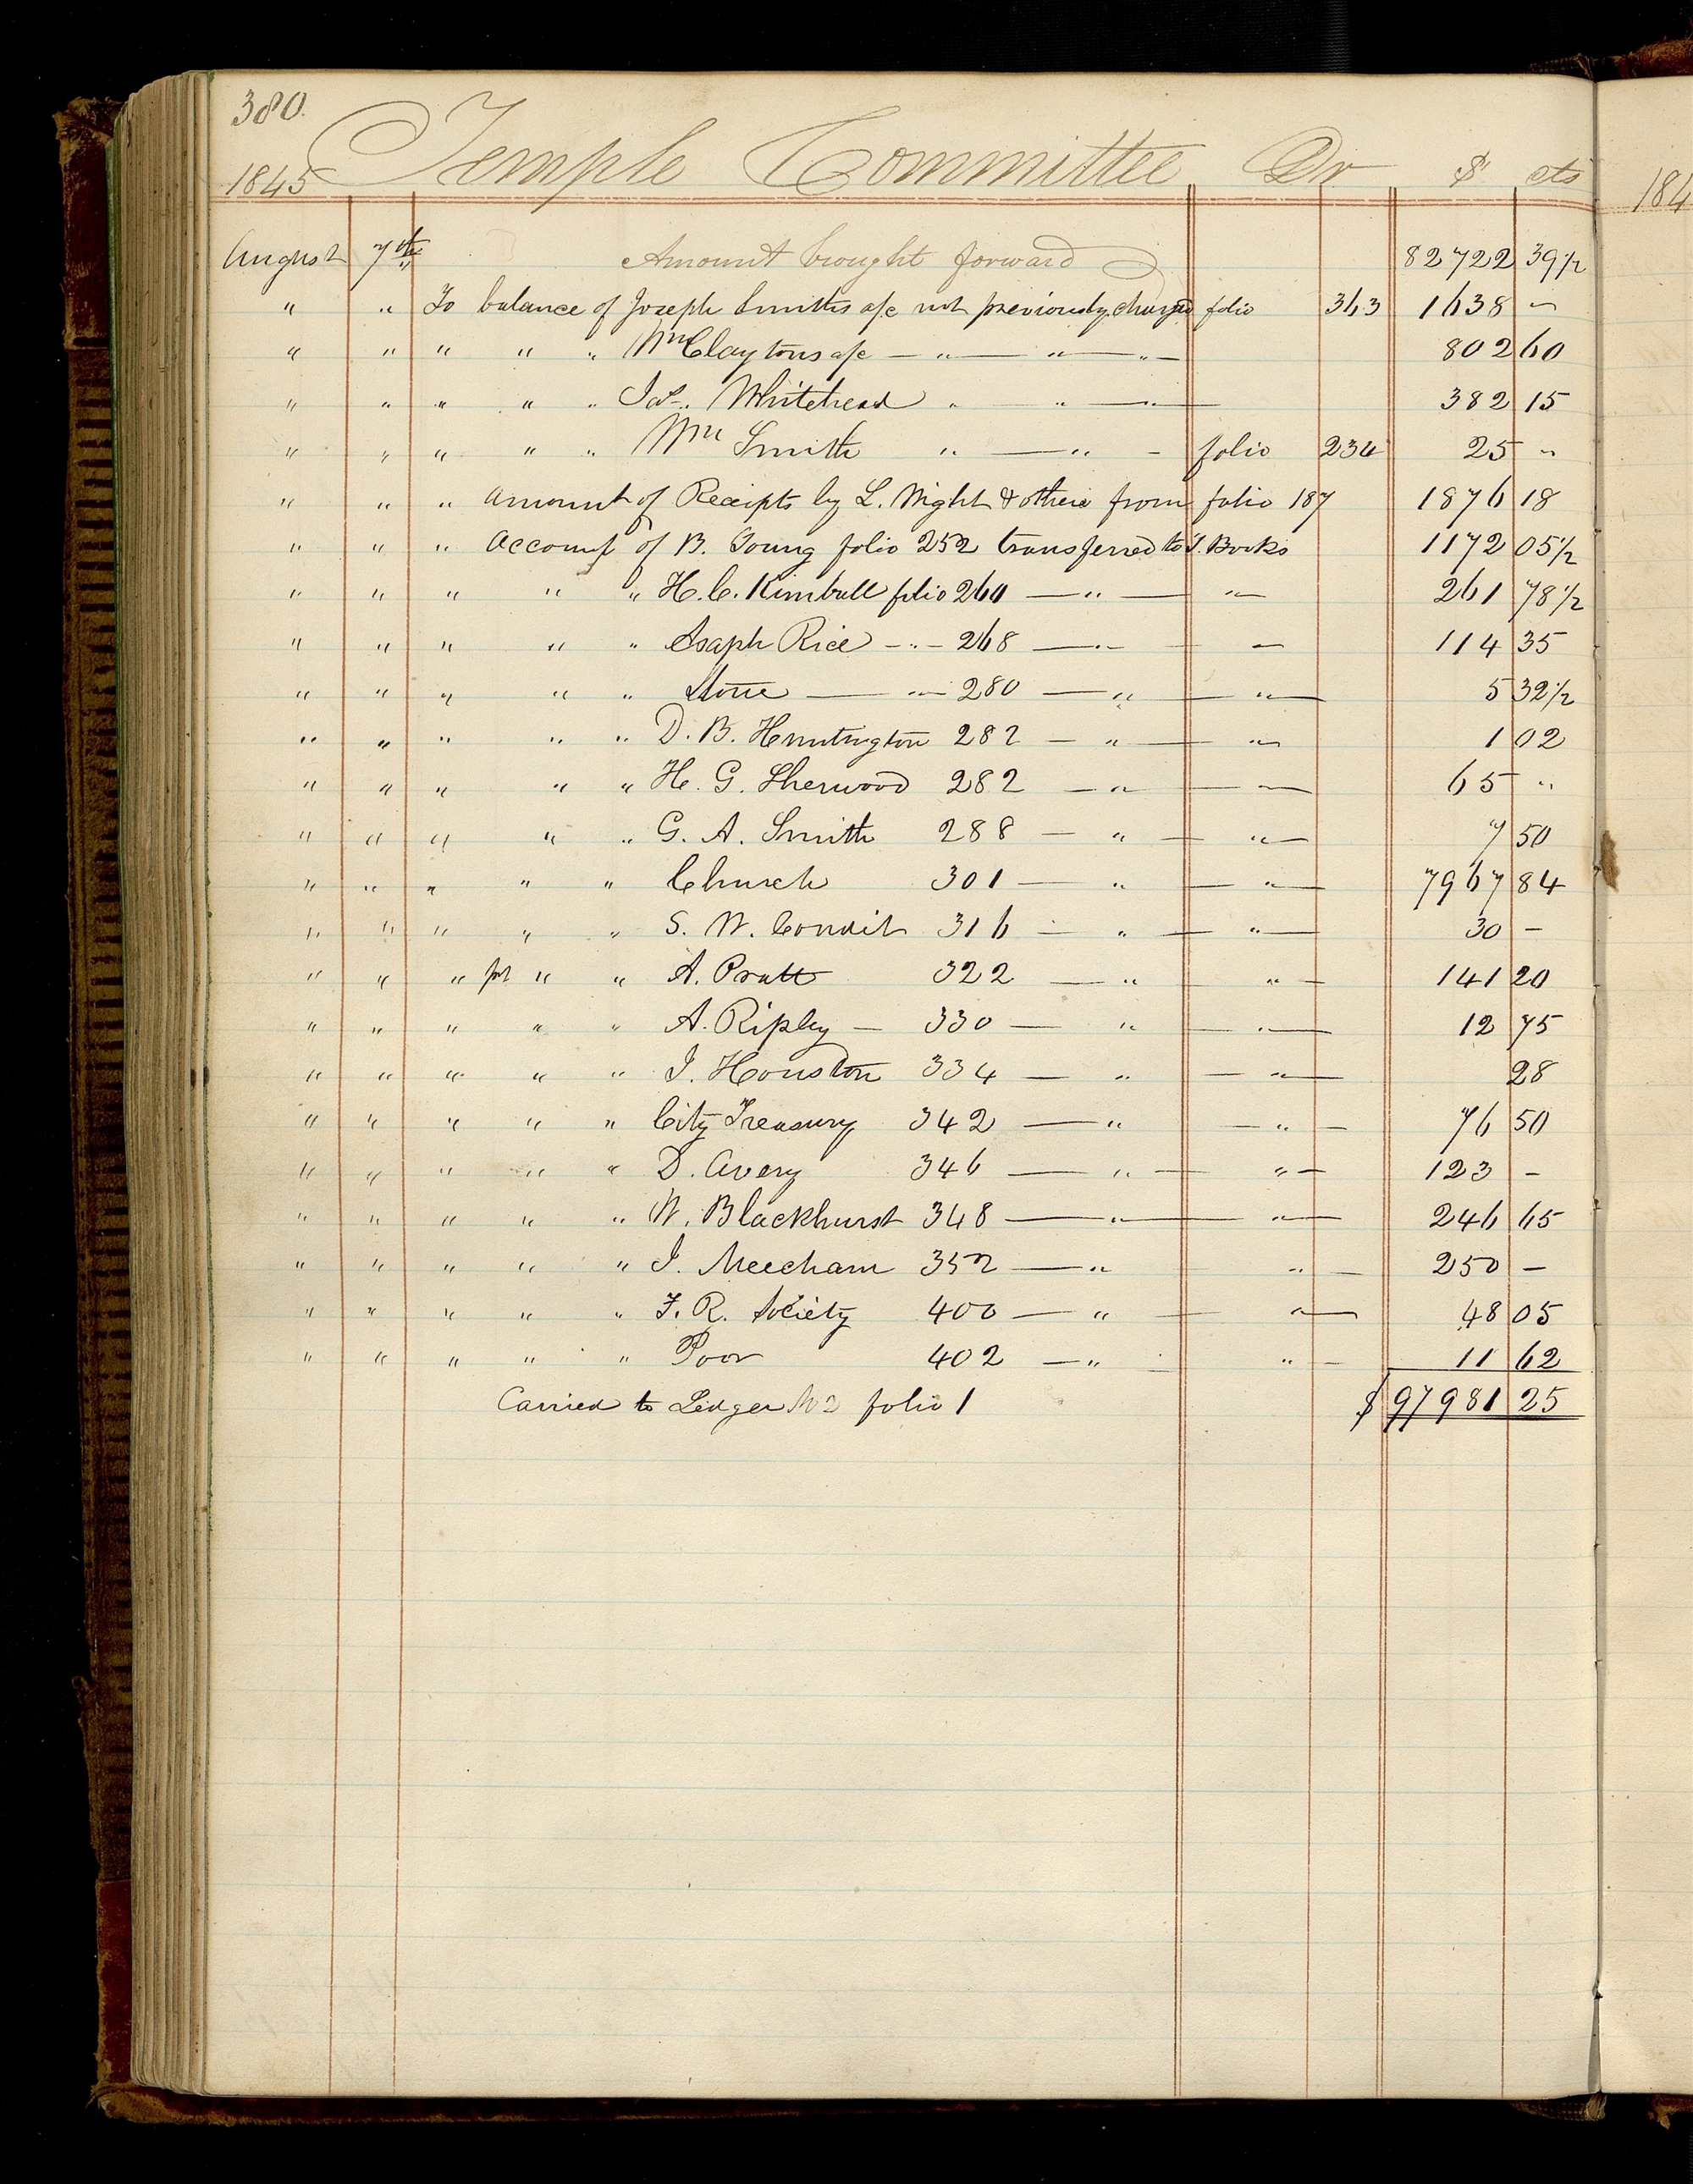 380.
1845 Temple Committee Dr $ cts
August 7th " Amount brought forward 82722 39 1/2
" " To balance of Joseph Smiths a/c not previously charged folio 363 1638 "
" " " " " Wm Claytons a/c — " — " — " — 802 60
" " " " " Jas. Whitehead " " — " — 382 15
" " " " " Wm Smith " — " — folio 234 25 "
" " " amount of Receipts by L. Wight & others from folio 187 1876 18
" " " Account of B. Young folio 252 transferred to T. Books 1172 05 1/2
" " " " " H. C. Kimball folio 260 — " — " — 261 78 1/2
" " " " " Asaph Rice — " — 268 — " — — 114 35
" " " " " Store — " — 280 — " — " — 5 32 1/2
" " " " " D. B. Huntington 282 — " — " — 1 02
" " " " " H. G. Sherwood 282 — " — " — 65 "
" " " " " G. A. Smith 288 — " — " — 7 50
" " " " " Church 301 — " — " — 7967 84
" " " " " S. W. Condit 316 — " — " — 30 —
" " " pr " " A. Pratt 322 — " " — 141 20
" " " " " A. Ripley — 330 — " — " — 12 75
" " " " " I. Houston 334 — " — " — 28
" " " " " City Treasury 342 — " — " — 76 50
" " " " " D. Avery 346 — " — " — 123 —
" " " " " W. Blackhurst 348 — " — " — 246 65
" " " " " I. Meecham 352 — " — " — 250 —
" " " " " F. R. Society 400 — " — " — 48 05
" " " " " Poor 402 — " — " — 11 62
Carried to Ledger No 2 folio 1 $ 97981 25
184